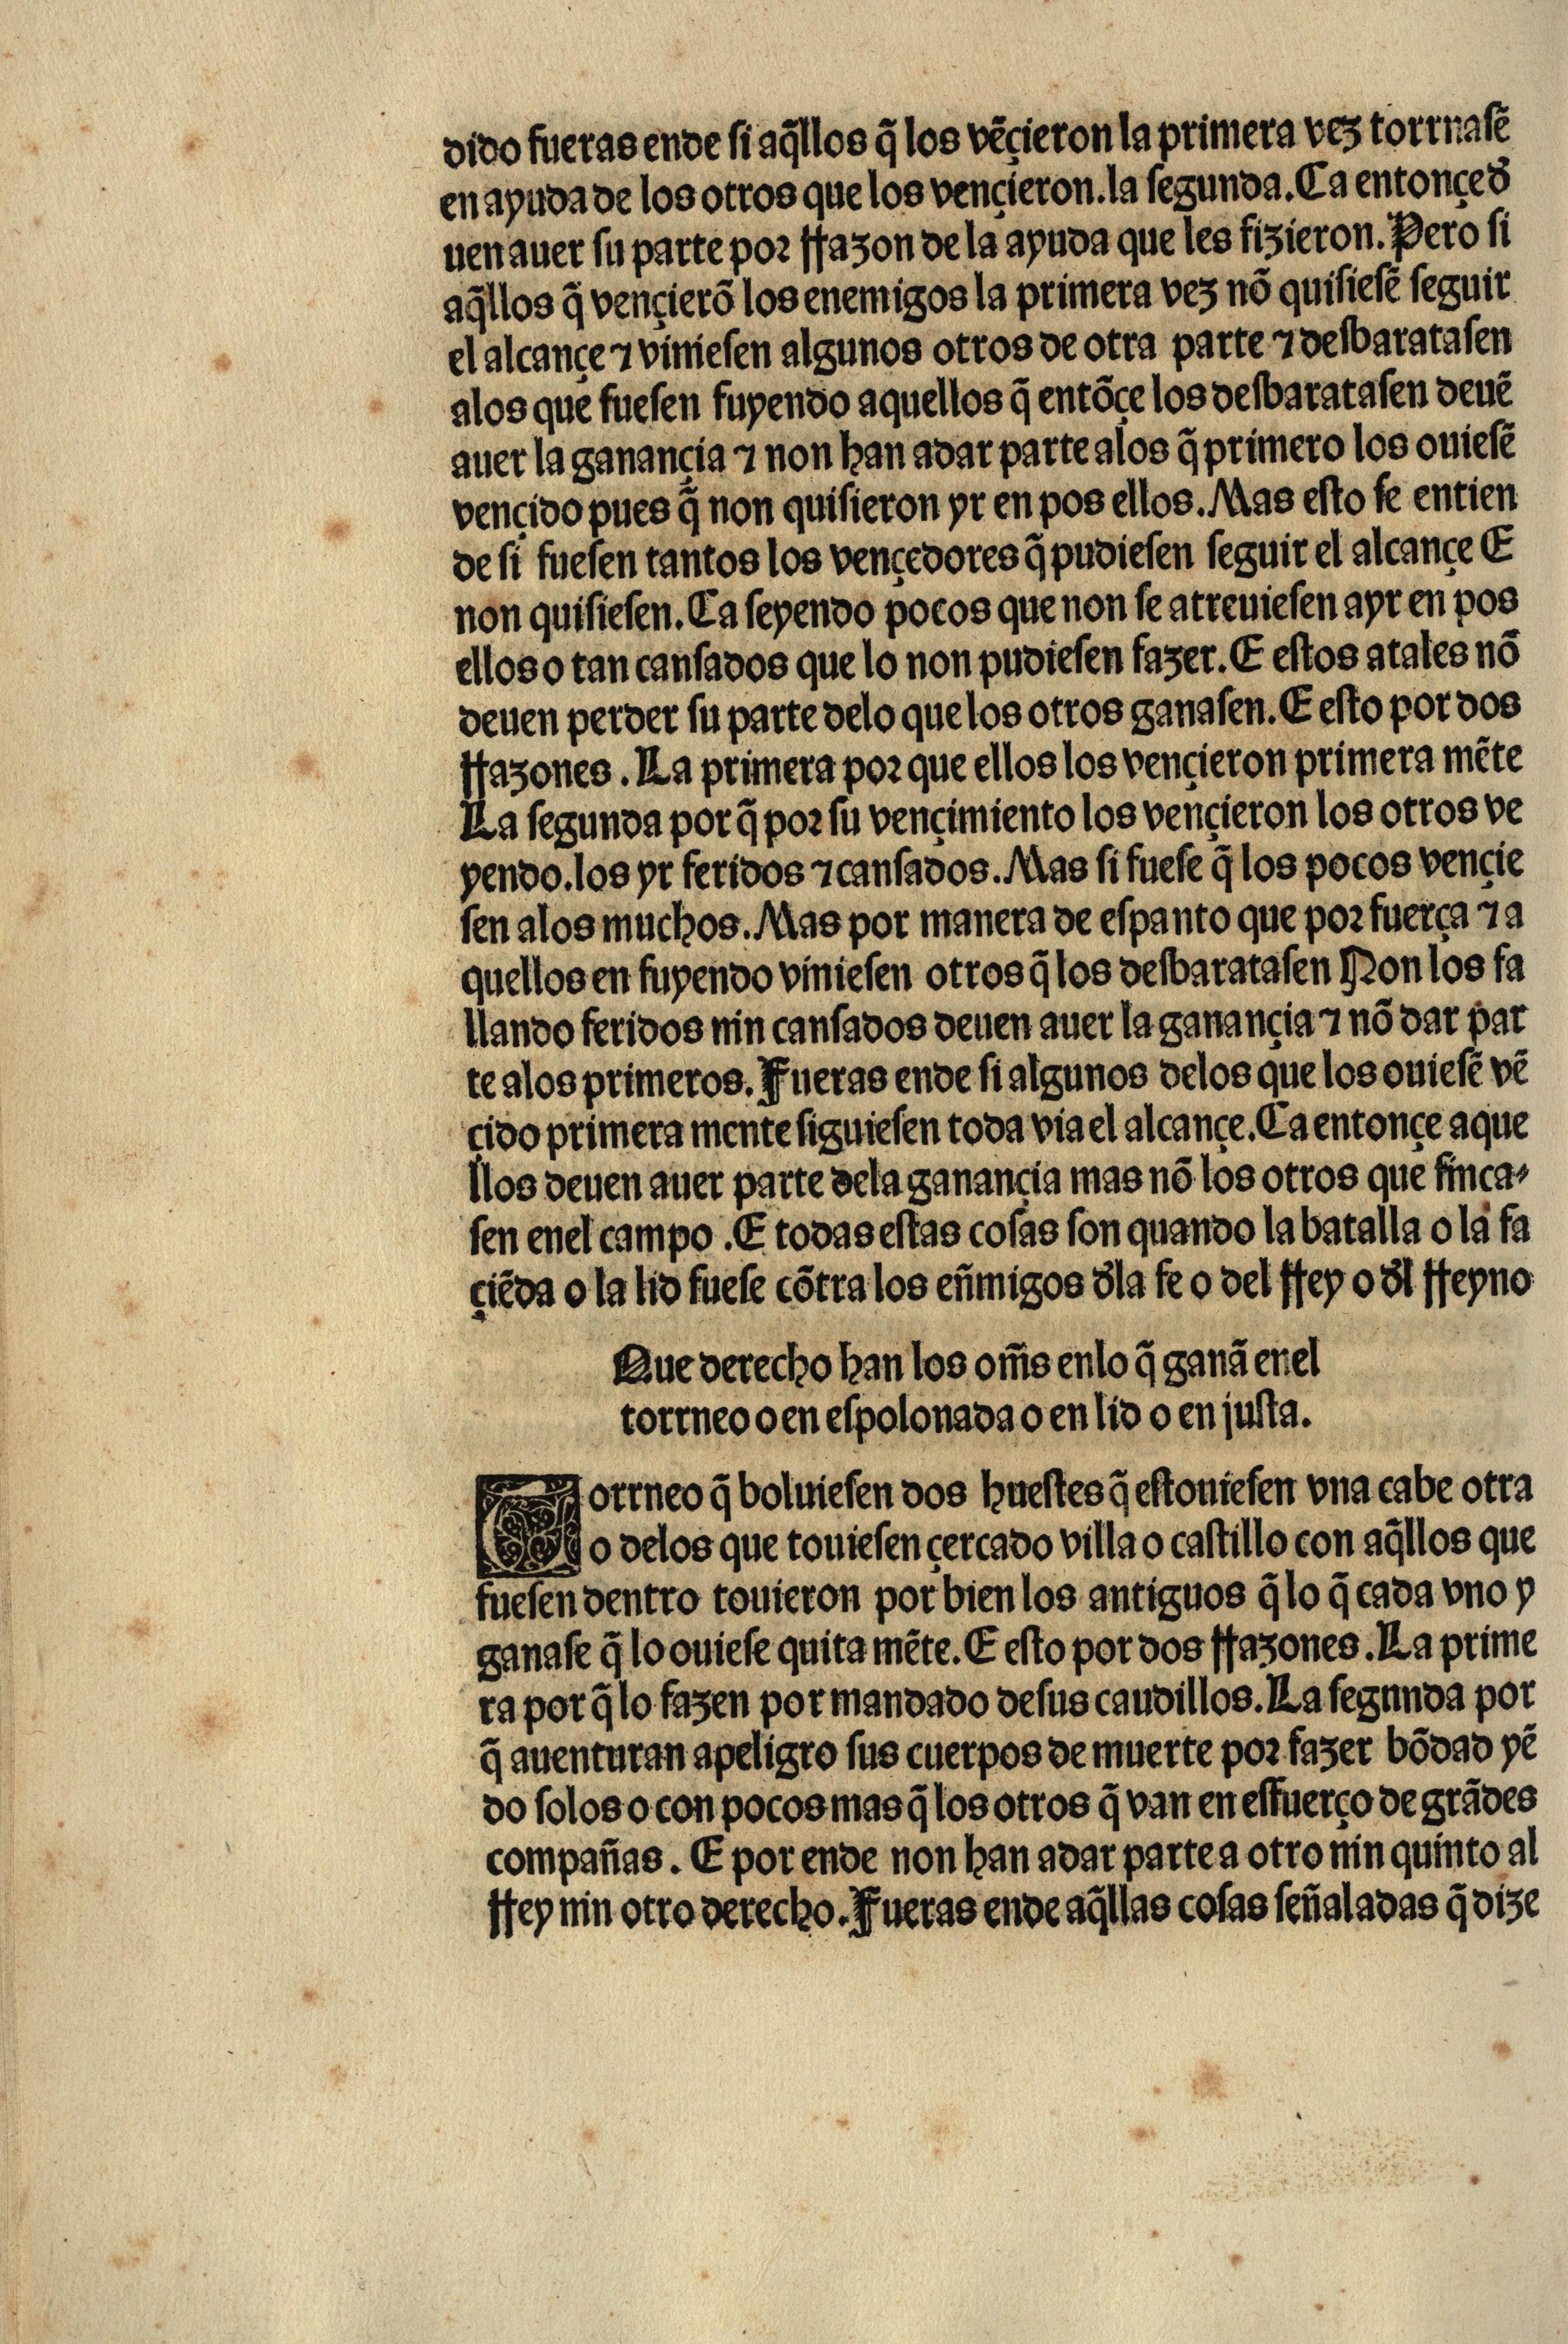 dido fueras ende si aq̃llos q̃ los vẽçieron la primera vez torrnasẽ
en ayuda de los otros que los vençieron.la segunda.Ca entonçe d̃
uen auer su parte por rrazon de la ayuda que les fizieron.Pero si
aq̃llos q̃ vençierõ los enemigos la primera vez nõ quisiesẽ seguir
el alcançe ⁊ viniesen algunos otros de otra parte ⁊ desbaratasen
alos que fuesen fuyendo aquellos q̃ entõçe los desbaratasen deuẽ
auer la ganançia ⁊ non han adar parte alos q̃ primero los ouiesẽ
vençido pues q̃ non quisieron yr en pos ellos.Mas esto se entien
de si fuesen tantos los vençedores q̃ pudiesen seguir el alcançe E
non quisiesen.Ca seyendo pocos que non se atreuiesen ayr en pos
ellos o tan cansados que lo non pudiesen fazer.E estos atales nõ
deuen perder su parte delo que los otros ganasen.E esto por dos
rrazones .La primera por que ellos los vençieron primera mẽte
La segunda por q̃ por su vençimiento los vençieron los otros ve
yendo.los yr feridos ⁊ cansados.Mas si fuese q̃ los pocos vençie
sen alos muchos.Mas por manera de espanto que por fuerça ⁊ a
quellos en fuyendo viniesen otros q̃ los desbaratasen Non los fa
llando feridos nin cansados deuen auer la ganançia ⁊ nõ dar par
te alos primeros.Fueras ende si algunos delos que los ouiesẽ vẽ
çido primera mente siguiesen toda via el alcançe.Ca entonçe aque
llos deuen auer parte dela ganançia mas nõ los otros que finca-
sen enel campo .E todas estas cosas son quando la batalla o la fa
çiẽda o la lid fuese cõtra los eñmigos d̃la fe o del rrey o d̃l rreyno
Que derecho han los om̃s enlo q̃ ganã enel
torrneo o en espolonada o en lid o en justa.
Torrneo q̃ boluiesen dos huestes q̃ estouiesen vna cabe otra
o delos que touiesen çercado villa o castillo con aq̃llos que
fuesen dentro touieron por bien los antiguos q̃ lo q̃ cada vno y
ganase q̃ lo ouiese quita mẽte.E esto por dos rrazones .La prime
ra por q̃ lo fazen por mandado desus caudillos.La segnnda por
q̃ auenturan apeligro sus cuerpos de muerte por fazer bõdad yẽ
do solos o con pocos mas q̃ los otros q̃ van en esfuerço de grãdes
compañas. E por ende non han adar parte a otro nin quinto al
rrey nin otro derecho.Fueras ende aq̃llas cosas señaladas q̃ dize